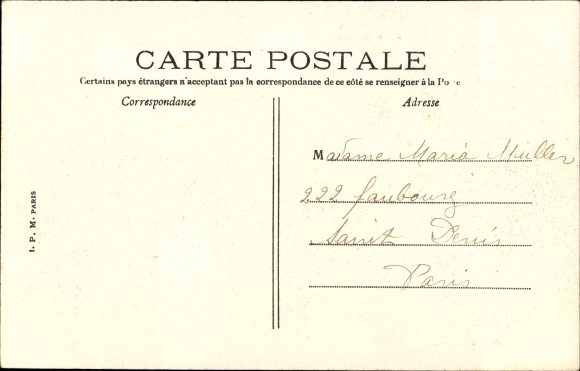 CARTE POSTALE
Certains pays étrangers n'acceptant pas la correspondance de ce côté se renseigner à la
Correspondance
Adresse
Madame Maria Muller
222 faubourg
Saint Denis
Paris
I. P. M. PARIS